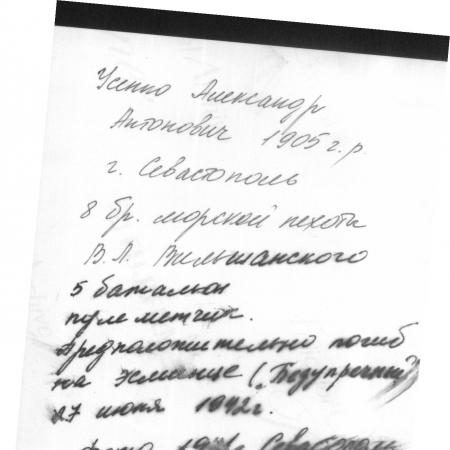 Усенко Александр
Антонович 1905 г.р.
г. Севастополь
8 бр. морской пехоты
В.Л. Вильшанского
5 батальон
пулеметчик.
Предположительно погиб
на эсминце („Безупречный")
27 июня 1942г.
Севастополь